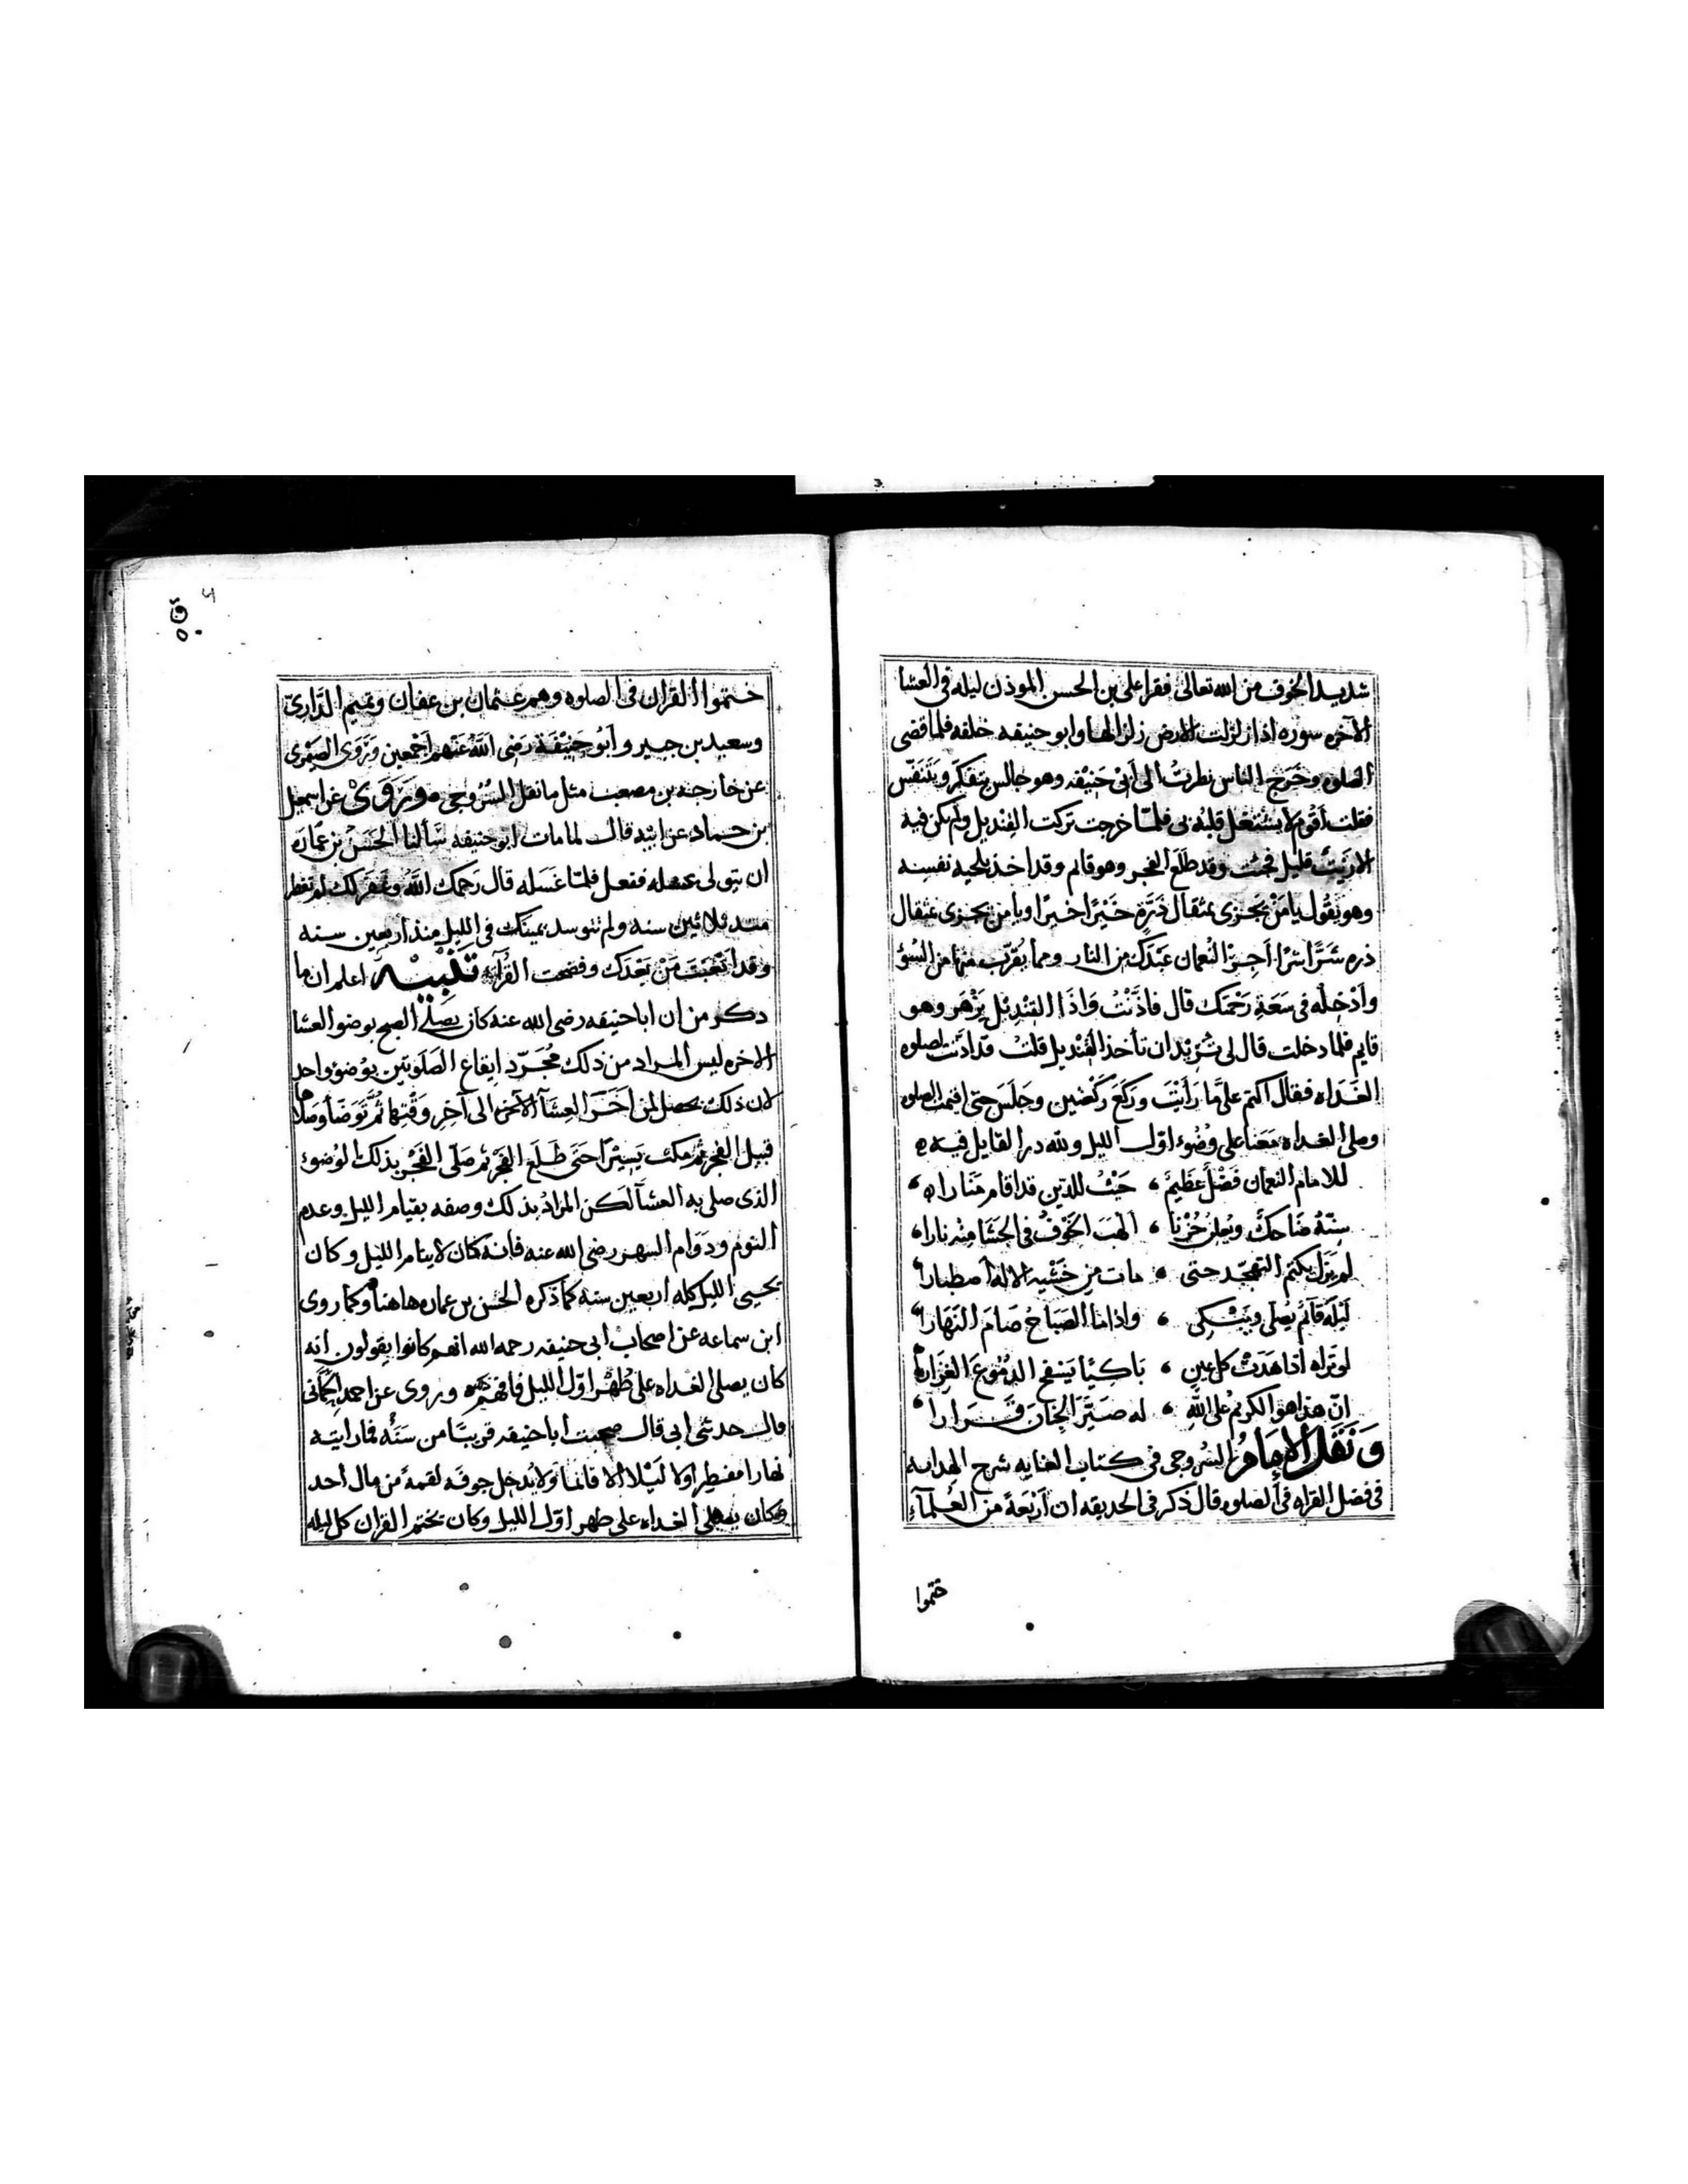 شديد الخوف من الله تعالى فقرا على بن الحسن الموذن ليله فى العشا
الآخره سوره اذا زلزلت الارض زلزالها وابو حنيفه خلفه فلما قضى
الصلوه وخرج الناس نظرتُ الى أبى حَنِيْفَه وهو جالس يتفكر ويَتَنَفّس
فقلت أقُوم لا يشتغل قلبُهُ بى فلمّا خرجت تركت القِنديل ولم يكن فيه
الا زَيتٌ قليل فجئت وقد طَلَعَ الفجر وهو قايم وقد اخذ بلحيه نفسِه
وهو يقُول يا مَنْ يَجْزى بمثقال ذَرّةٍ خَيْرًا خيرًا ويا من يجزى بمثقال
ذره شَرًّا شرًا أجِرِ النُعمان عَبْدَكَ من النار ومما يُقرّب منها من السُوْ
وأدْخِلْه فى سَعَةِ رَحْمَتِك قال فاذَّنْتُ وَاذَا القِنْدِيْل يَزْهَر وهو
قايم فلما دخلت قال لى تُريْد ان تأخذ القنديل قلتُ قد اذّنت لصلوه
الغَدَاه فقال اكتم علىَّ ما رَأيْتَ ورَكَعَ رَكْعَتين وجَلَسَ حتى اقيمت الصلوه
وصلى الغداه مَعَنا على وُضُوء اوّل الليل ولله در القايل فيه
للامام النعمان فَضْلٌ عَظيمٌ ، حَيْثُ للدّين قد اقام مَنَارا ،
سِنّهُ ضَاحكٌ ويُعلِنُ حُزْنا ، الْهَبَ الخَوْفُ فى الحَشَا مِنْه نارا ،
لم يَزَل يكتم التَهجّد حتى ، مات من خَشْيَه الاله اصطبارا ،
لَيْلَهُ قائم يُصلّى ويَشْتكى ، واذا ما الصَبَاحُ صَامَ النَهَارا ،
لو تَراه اذا هَدَتْ كل عين ، بَاكِيًا يَسْفح الدمُوعَ الغِزَارا
انّ هذا هو الكريم على الله ، له صَيَّر الجِنَان قَرَارا
وَنَقَلَ الإمَامُ السُروجى فى كتاب الغايه شرح الهدايه
فى فضل القراه فى الصلوه قال ذكر فى الحديقه ان أرْبَعَةً من العُلمآءِ
ختموا
ختموا القران فى الصلوه وهم عثمان بن عفان وتميم الدَّارىّ
وسعيد بن جبير وأبُو حَنِيْفَة رَضى اللَّهُ عَنْهم أجْمعين وَرَوَى الصَيْمَرى
عن خارجه بن مصعب مثل ما نقل السُرُوجى ورَوَىْ عن اسمعيل
بن حماد عن ابيْه قال لما مات ابو حنيفه سَألنا الحَسَنْ بن عمَارَه
ان يتولى غسله ففعل فلمّا غَسَله قال رَحِمك اللَّهُ وغَفَرَ لك لم تفطر
منذ ثلاثين سنه ولم تتوسد يمينك فى الليل منذ أربعين سنه
وقد أتْعَبْتَ مَنْ بَعْدَك وفضحت القُرآءَ تَنْبِيْه اعلم ان ما
ذكر من ان ابا حنيفه رضى الله عنه كان يصَلّى الصبح بوضو العشا
الاخره ليس المراد من ذلك مُجَرّد ايقاع الصَلَوتين بوُضوْ واحد
لان ذلك يحصل لمن أخّرَ العِشَآ الآخره الى آخِر وَقْتِها ثُمَّ تَوَضّأ وصَلّاها
قبيل الفجر ثم مكث يَسِيْرًا حَتى طَلَعَ الفَجْر ثم صَلّى الفَجْر بذلك الوُضوء
الذى صلى به العشآ لكن المُرَادُ بذلك وصفه بقيام الليل وعدم
النوم ودَوَام السهر رضى الله عنه فانه كان لا ينام الليل وكان
يحيى الليل كله اربعين سنه كما ذكره الحسن بن عماره هاهنا وكما روى
ابن سماعه عن اصحاب ابى حنيفه رحمه الله انهم كانوا يقولون انه
كان يصلى الغداه على طُهْر اوّل الليل فافهم وروى عن احمد
قال حدثنى ابى قال صحبت ابا حنيفه قريبًا من سَنَه فما رايته
نهارا مفطرا ولا لَيْلا الا قائما ولا يُدخل جوفَه لقمةً من مال احد
وكان يصلى الغداه على طهر اوّل الليل وكان يختم القران كل ليله